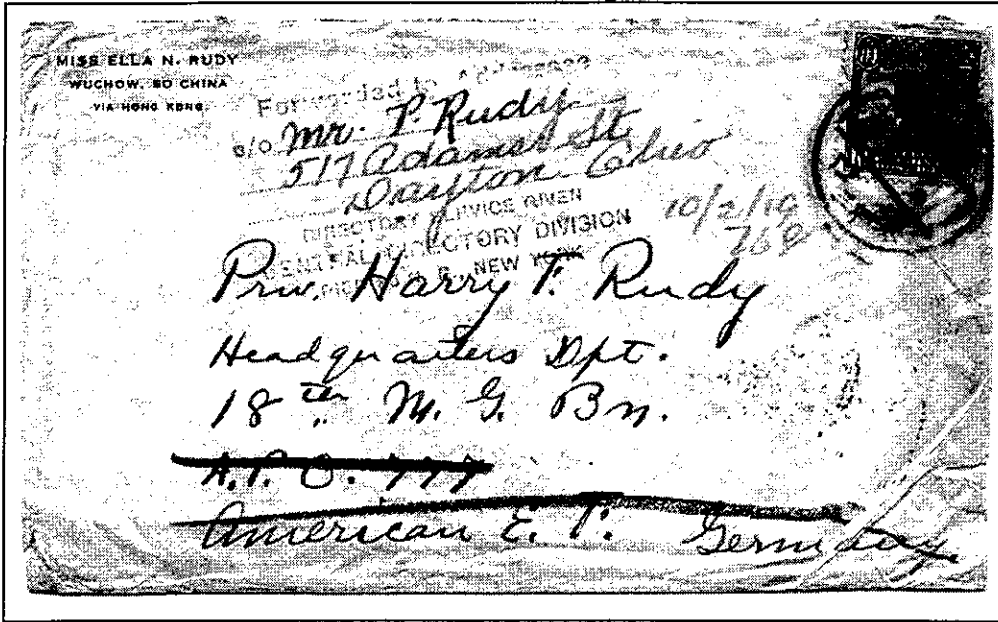 MISS ELLA N. RUDY
WUCHOW, SO CHINA
VIA HONG KONG.
Forwarded to
c/o Mr. P. Rudy
517 Adams St
Dayton Ohio
DIRECTORY SERVICE GIVEN
CENTRAL DIRECTORY DIVISION
NEW YORK
10/2/19
762
Priv. Harry F. Rudy
Headquarters Dpt.
18th M. G. Bn.
A.P.O. 777
American E. F. Germany